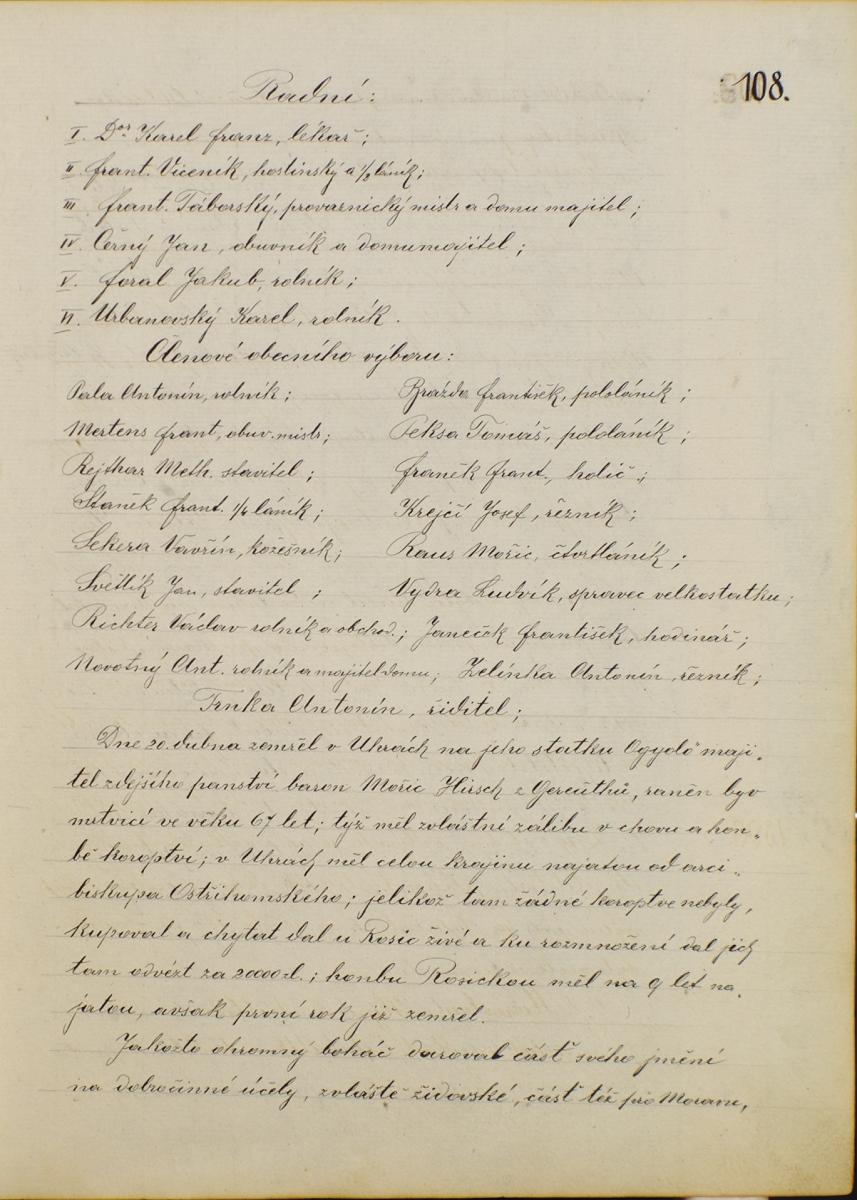 108.
Radní:
I. Dor. Karel Franz, lékař;
II. Frant. Viceník, hostinský a 1/2 láník;
III Frant. Táborský, provaznický mistr a domu majitel;
IV. Černý Jan, obuvník a domumajitel;
V. Foral Jakub, rolník;
VI. Urbanovský Karel, rolník.
Členové obecního výboru:
Pala Antonín, rolník; Brázda František, pololáník;
Mertens Frant, obuv. mistr; Peksa Tomáš, pololáník;
Rejthar Meth. stavitel; Franěk Frant., holič;
Staněk Frant. 1/4 láník; Krejčí Josef, řezník;
Sekera Vavřín, kožešník; Raus Mořic, čtvrtláník;
Světlík Jan, stavitel; Vydra Ludvík, správec velkostatku;
Richter Václav rolník a obchod.; Janeček František, hodinář;
Novotný Ant. rolník a majitel domu; Zelinka Antonín, řezník;
Trnka Antonín, řiditel;
Dne 20. dubna zemřel v Uhrách na jeho statku Ogyoló maji„
tel zdejšího panství baron Mořic Hirsch z Gereuthů, raněn byv
mrtvicí ve věku 67 let; týž měl zvláštní zálibu v chovu a hon„
bě koroptví; v Uhrách měl celou krajinu najatou od arci„
biskupa Ostřihomského; jelikož tam žádné koroptve nebyly,
kupoval a chytat dal u Rosic živé a ku rozmnožení dal jich
tam odvézt za 20000 zl.; honbu Rosickou měl na 9 let na„
jatou, avšak první rok již zemřel.
Jakožto ohromný boháč daroval část svého jmění
na dobročinné účely, zvláště židovské, část též pro Moravu,